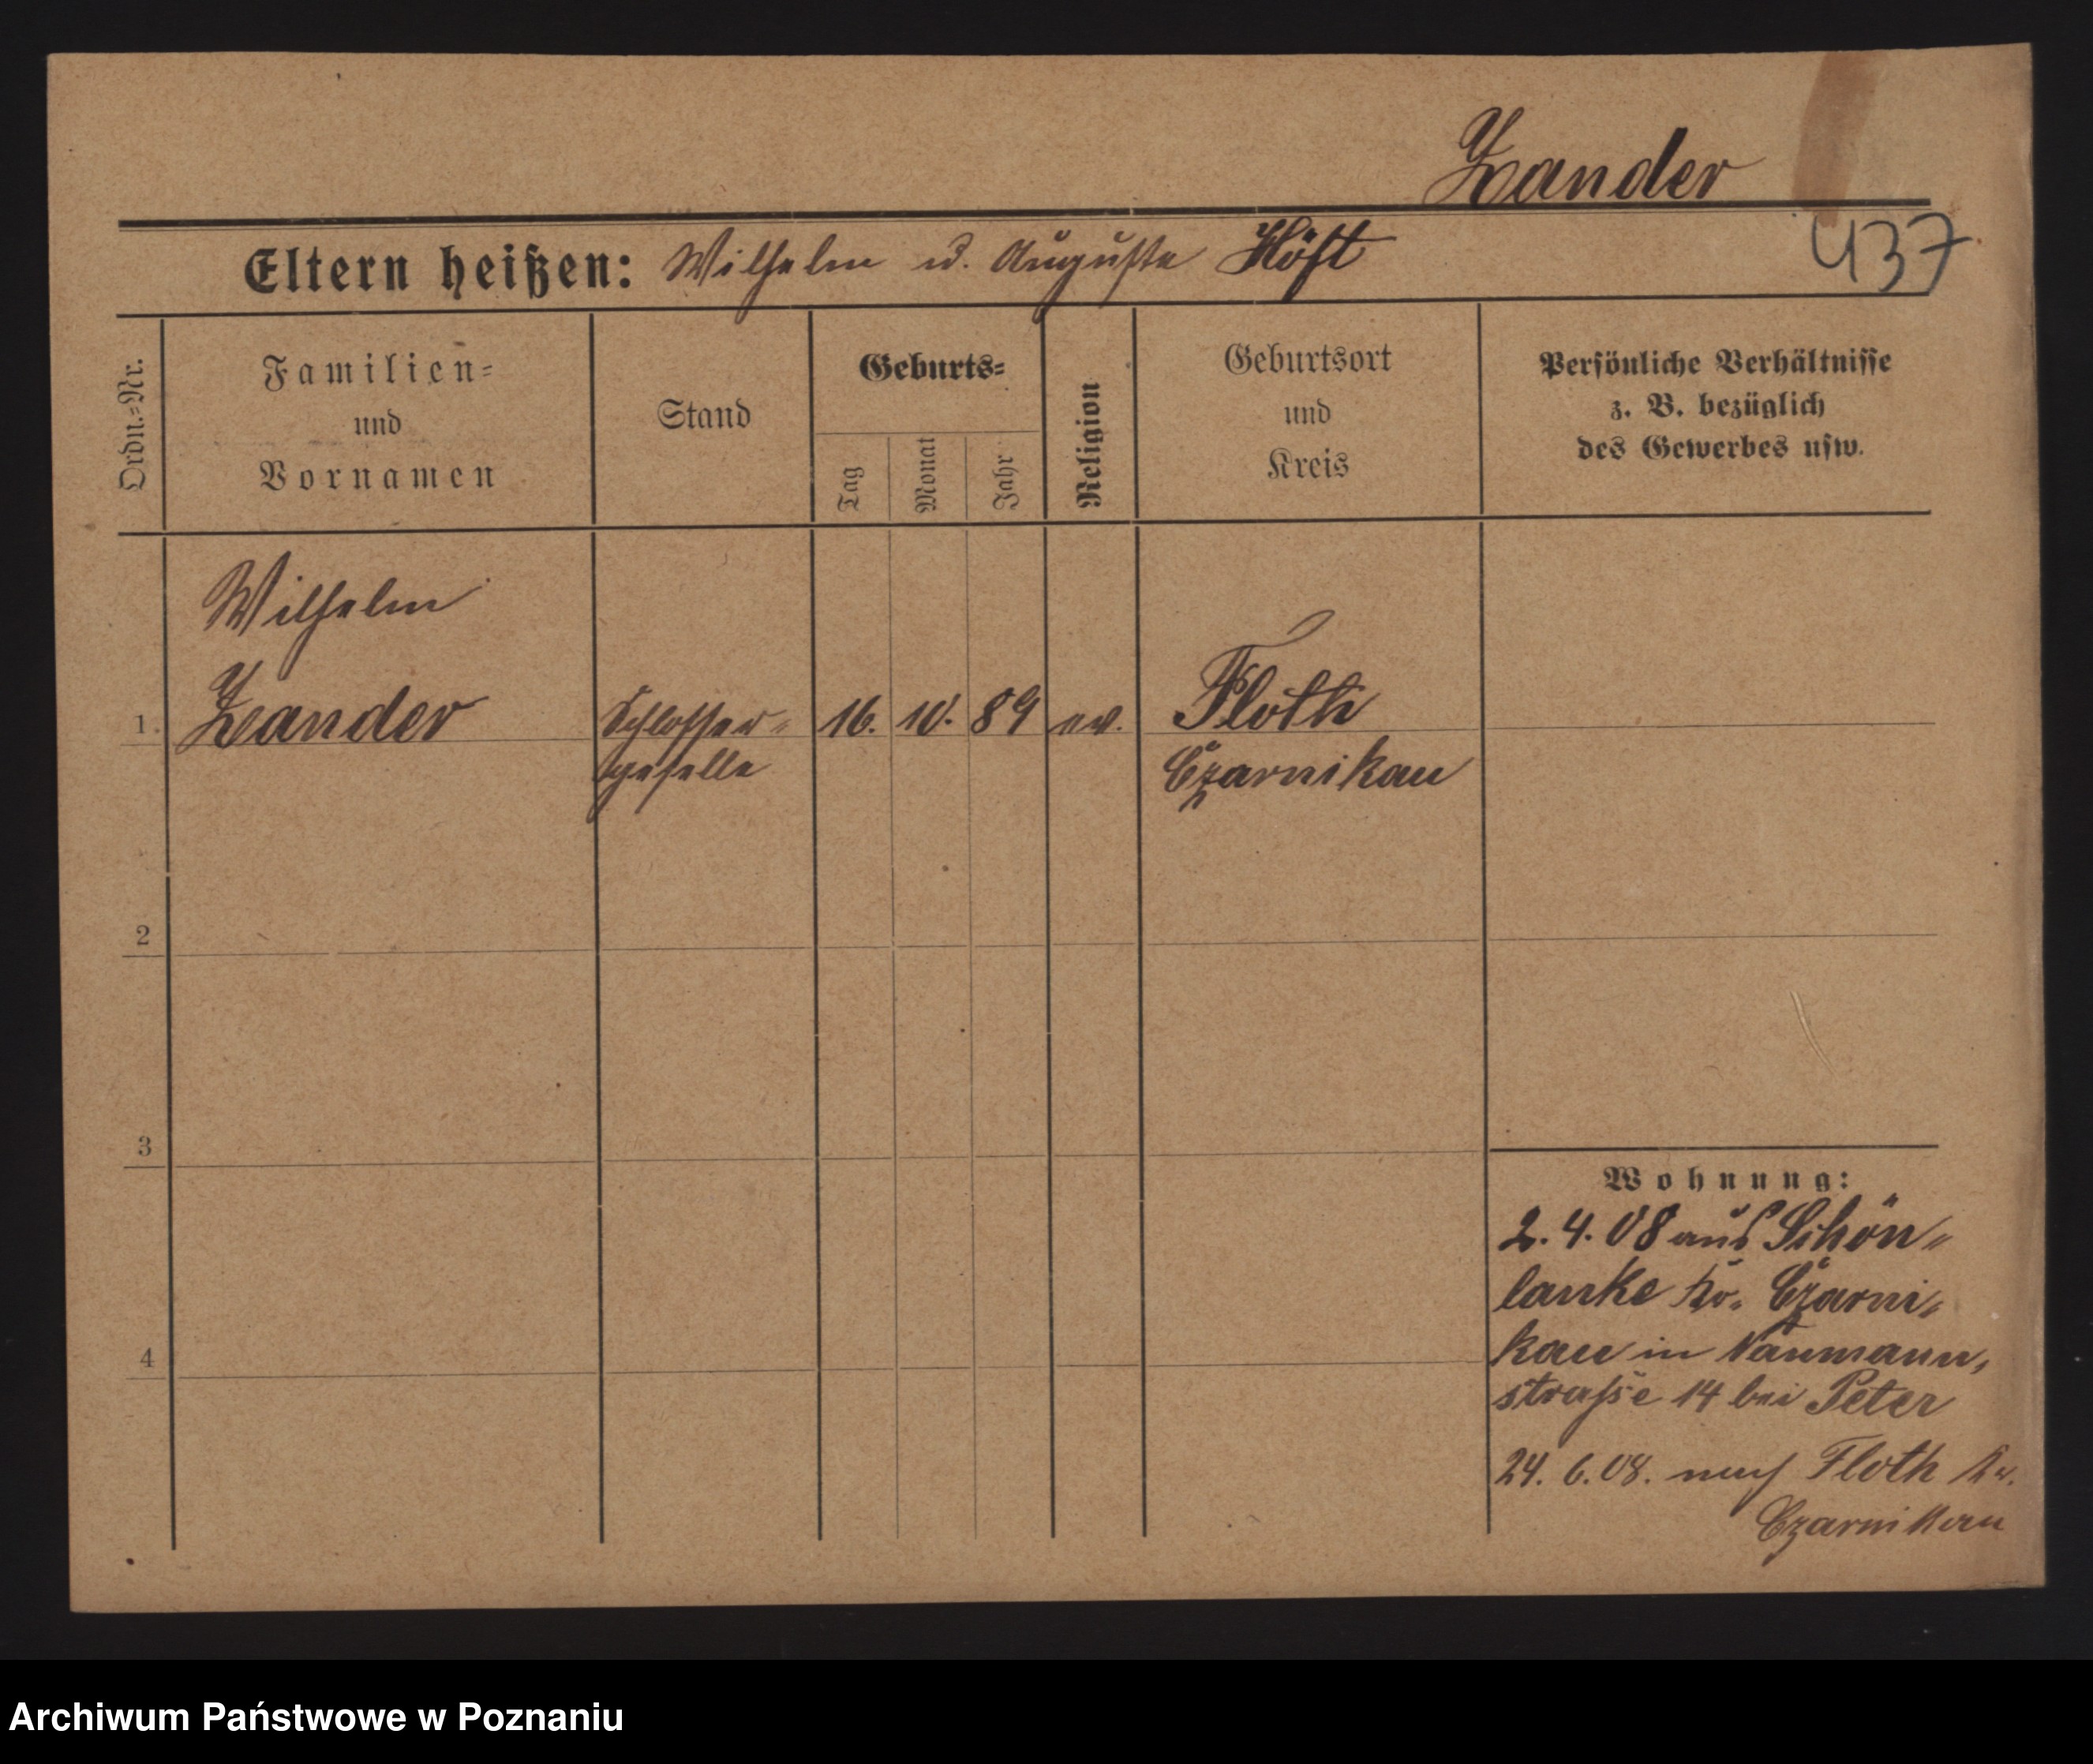 Zander
437
Eltern heißen: Wilhelm u. Auguste Höft
Ordn.-Nr.
Familien-
und
Vornamen
Stand
Geburts-
Tag
Monat
Jahr
Religion
Geburtsort
und
Kreis
Persönliche Verhältnisse
z. B. bezüglich
des Gewerbes usw.
Wilhelm
1. Zander Schlosser- 16. 10. 89 ev. Floth
geselle Czarnikau
2
3
4
Wohnung:
2.4.08 aus Schön-
lanke Kr. Czarni-
kau in Naumann-
strasse 14 bei Peter
24.6.08. nach Floth Kr.
Czarnikau
Archiwum Państwowe w Poznaniu